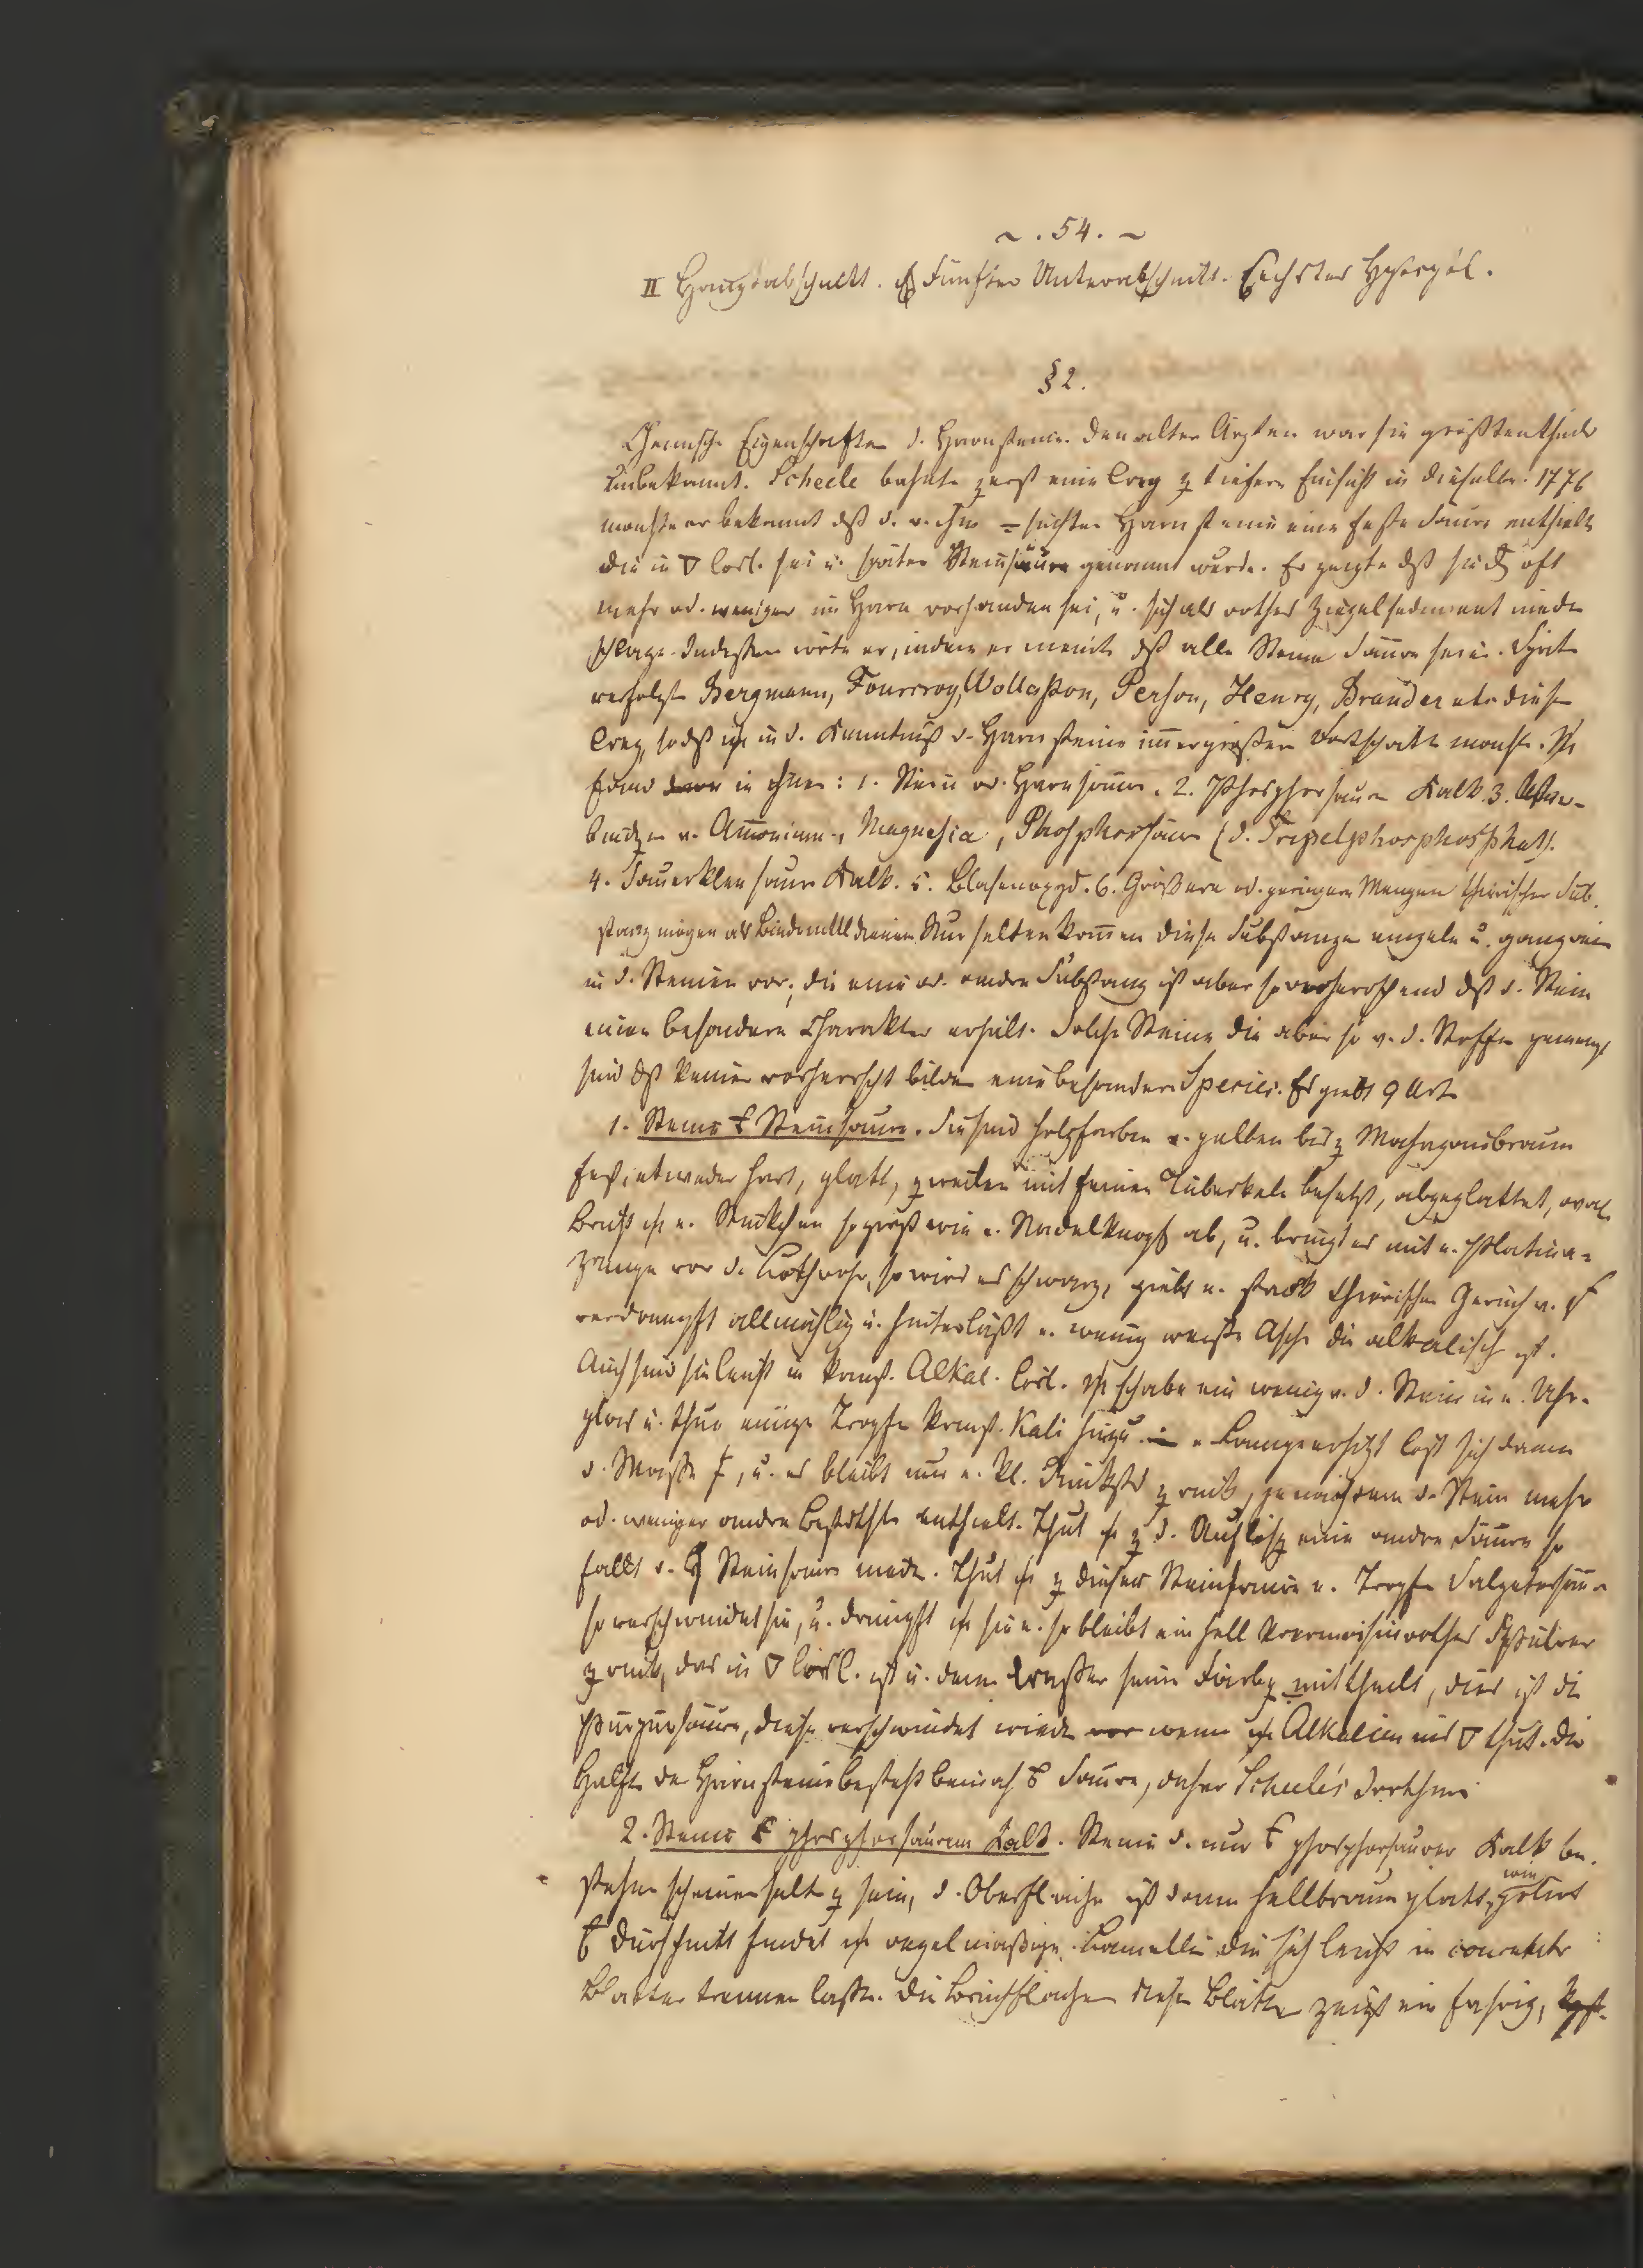 ~ . 54. ~
II Hauptabschnitt. Fünfter Unterabschnitt. Sechstes
§ 2.
Chemische Eigenschaften d. Harnsteine. Den alten Ärzten war sie größtentheils
unbekannt. Scheele bahnte zuerst eine Weg z tiefern Einsicht in dieselbe. 1776
machte er bekannt dß d. v. ihm = suchten Harnsteine eine feste Säure enthielt
die in ▽ lösl. sei u. später Steinsäure genannt wurde. Er zeigte dß sie oft
mehr od. weniger im Harn vorhanden sei, u. sich als rothes Ziegelsediment nieder
schlage. Indessen irrte er, indem er meinte dß alle Steine Säure seien. Später
verfolgte Bergmann, Fourcroy, Wollaston, Person, Henry, Brandes etc diesen
Weg, sodß in d. Kenntniß d. Harnsteine immer größere Fortschritte machte.
fand in ihnen: 1. Stein od. Harnsäure. 2. Phosphorsauren Kalk. 3.
v. Ammonium, Magnesia, Phosphorsäure (d. Tripelphosphosphat).
4. Sauerkleesauren Kalk. 5. Blasenoxyd. 6. Größere od. geringere Mengen thierischer Sub.
stanz mögen als Bindemittel dienen. Nur selten kommen diese Substanzen einzeln u. ganz rein
in d. Steinen vor; die eine od. andre Substanz ist aber so vorherrschend dß d. Stein
einen besondern Charakter erhält. Solche Steine die aber so v. d. Stoffen gemengt
sind dß keiner vorherrscht bilden eine besondere Species. Es giebt 9 Arten
1. Steine Steinsäure. Sie sind holzfarben v. gelben bis z Mahagonibraun
fest, entweder hart, glatt, zuweilen mit feinen Tuberkeln besetzt, abgeplattet, oval
Bricht n. Stückchen so groß wie n. Nadelknopf ab, u. bringt es mit n. Platina=
zange vor d. Löthrohr, so wird es schwarz, giebt n. stark thierischen Geruch v.
verdampft allmählig u. hinterläßt n. wenig weiße Asche die alkalisch ist.
Auch sind sie leicht in kaust. Alkal. lösl. schabe ein wenig v. d. Stein in n. Uhr-
glas u. thue einige Tropfen kaust. Kali hinzu erhitzt löst sich dann
d. Masse, u. es bleibt nur n. kl. Rückstd zurück, je nachdem d. Stein mehr
od. weniger andre Bestdthle enthielt. Thut z d. Auflösg eine andre Säure so
fällt d. Steinsäure nieder. Thut z dieser Steinsäure n. Tropfen Salpetersäure
so verschwindet sie, u. dampft sie so bleibt ein hell karmoisinrothes Pulver
zurück, das in ▽ lösl. ist u. dem Wasser seine Färbg mittheilt, dies ist die
Purpursäure, diese verschwindet wieder wenn Alkalien ins ▽ thut. Die
Hälfte der Harnsteine besteht beinah Säure, daher Scheele's Irrthum
2. Steine phosphorsaurem Kalk. Steine d. nur phosphorsaurer Kalk be.
stehen scheinen selt z sein, d. Oberfläche ist dann hellbraun glatt, wie polirt
Durchschnitt findet regelmäßige Lamellen die sich leicht in
Blätter trennen lassen. Die Bruchfläche dieser Blätter zeigt ein fasrig,